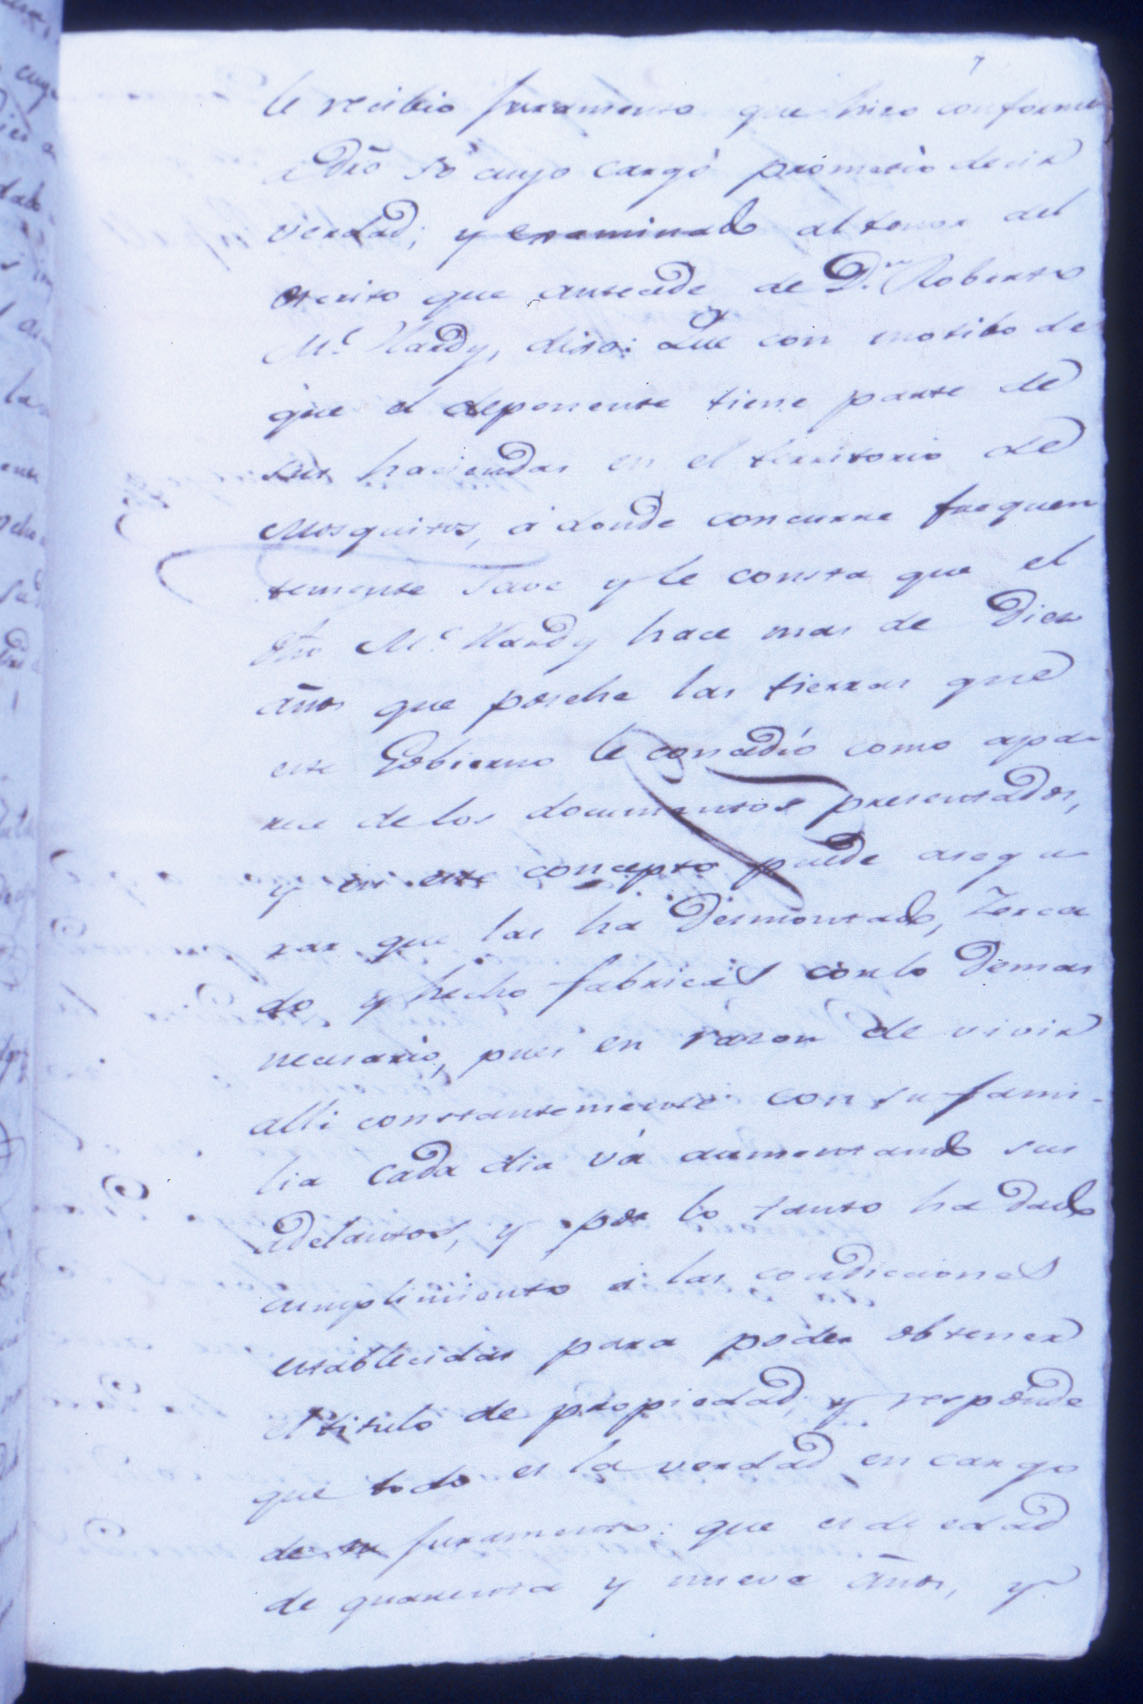 7
le recibio juramento que hizo conforme
a drõ so cuyo cargo prometio decir
verdad; y examinado al tenor del
escrito que antecede de Dn. Roberto
Mc. Hardy, dixo: Que con motibo de
que el deponente tiene parte de
sus haciendas en el territorio de
Mosquitos, á donde concurre frequen
temente save y le consta que el
dho Mc. Hardy hace mas de Diez
años que poséhe las tierras que
este Gobierno le concedió como apa-
rece de los documentos presentados,
y en este concepto puede asegu-
rar que las ha Desmontado, Zerca
do y hecho fabricas con lo Demas
necesario, pues en razon de vivir
alli constantemente con su fami-
lia cada dia vá aumentando sus
adelantos, y por lo tanto ha dado
cumplimiento á las condiciones
establecidas para poder obtener
el titulo de propiedad, y responde
que todo es la verdad en cargo
de su juramento: que es de edad
de quarenta y nueve años, y